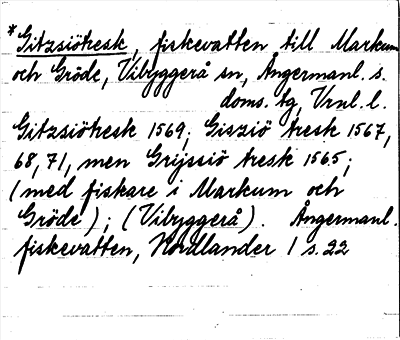 *Gitzsiötresk, fiskevatten till Markum
och Gröde, Vibyggerå sn, Ångermanl. s.
doms. tg, Vrnl. l.
Gitzsiötresk 1569; Giszsiö tresk 1567,
68, 71, men Grijssiö tresk 1565;
(med fiskare i Markum och
Gröde); (Vibyggerå). Ångermanl.
fiskevatten, Nordlander 1 s. 22